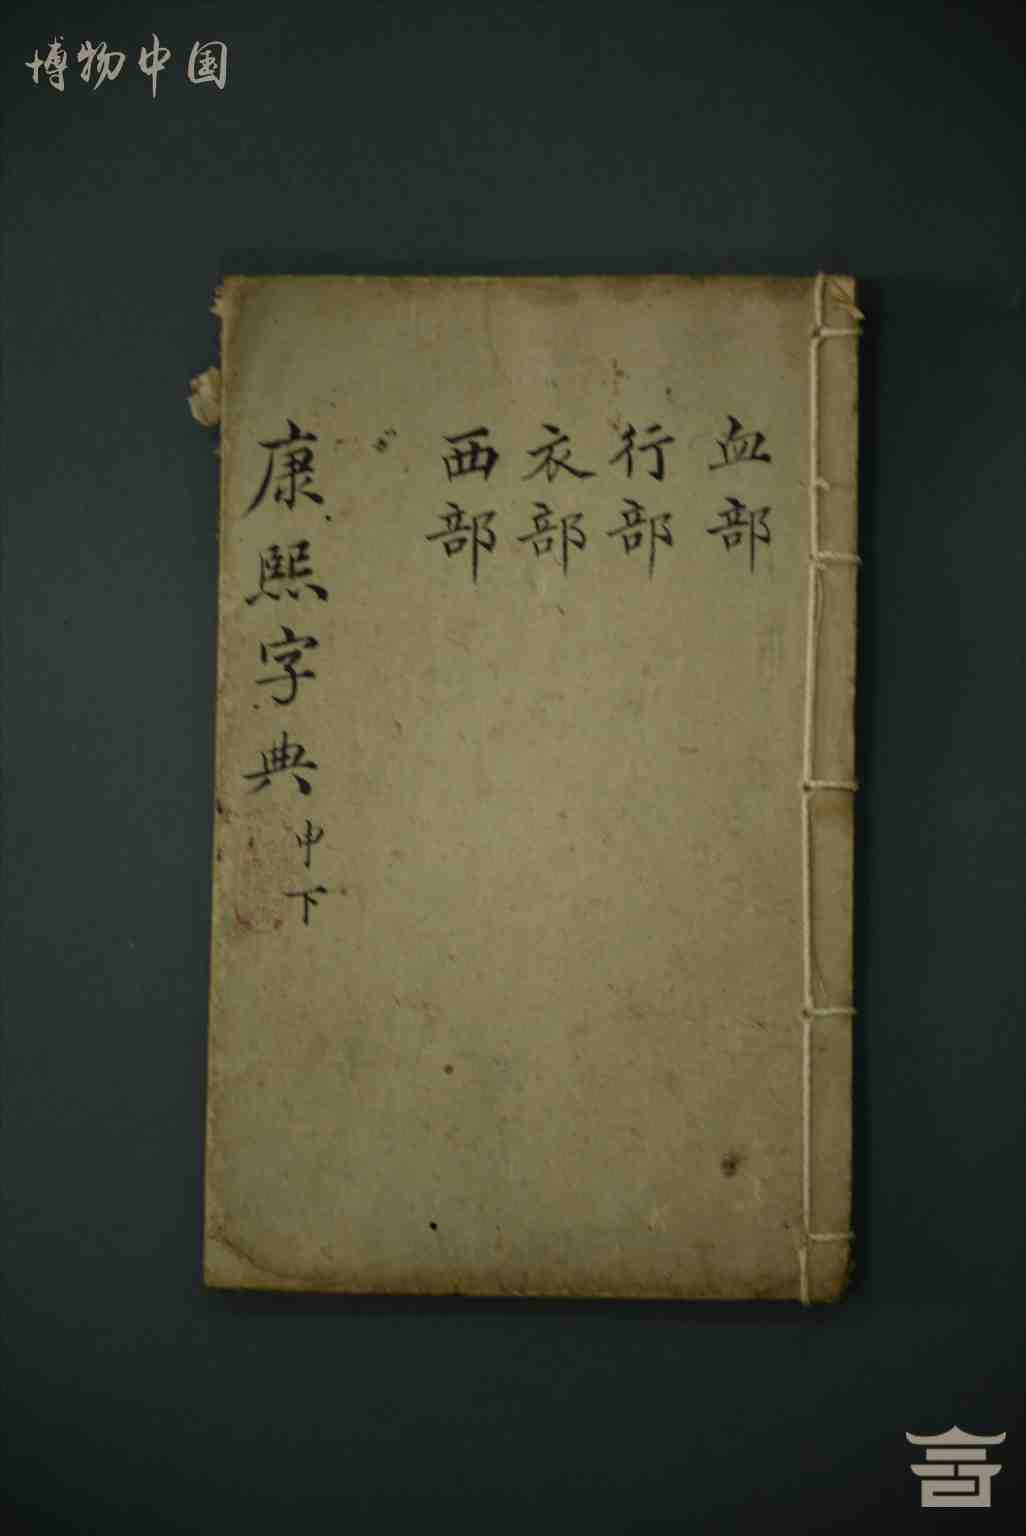 博物中国
血部
行部
衣部
西部
康熙字典
申下